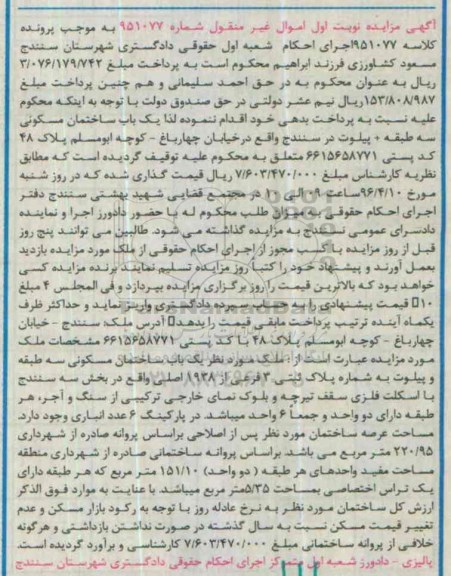 آگهی مزایده نوبت اول اموال غیر منقول شماره ۹۵۱۰۷۷ به موجب پرونده
کلاسه ۹۵۱۰۷۷اجرای احکام شعبه اول حقوقی دادگستری شهرستان سنندج
مسعود کشاورزی فرزند ابراهیم محکوم است به پرداخت مبلغ ۳/۰۷۶/۱۷۹/۷۴۲
ریال به عنوان محکوم به در حق احمد سلیمانی و هم چنین پرداخت مبلغ
۱۵۳/۸۰۸/۹۸۷ریال نیم عشر دولتی در حق صندوق دولت با توجه به اینکه محکوم
علیه نسبت به پرداخت بدهی خود اقدام ننموده لذا یک باب ساختمان مسکونی
سه طبقه + پیلوت در سنندج واقع درخیابان چهارباغ - کوچه ابومسلم پلاک ۴۸
کد پستی ۶۶۱۵۶۵۸۷۷۱ متعلق به محکوم علیه توقیف گردیده است که مطابق
نظریه کارشناس مبلغ ۷/۶۰۳/۴۷۰/۰۰۰ ریال قیمت گذاری شده که در روز شنبه
مورخ ۹۶/۴/۱۰ساعت ۰۹ الی ۱۰ در مجتمع قضایی شهید بهشتی سنندج دفتر
اجرای احکام حقوقی به میزان طلب محکوم له با حضور دادورز اجرا و نماینده
دادسرای عمومی سنندج به مزایده گذاشته می شود. طالبین می توانند پنج روز
قبل از روز مزایده با کسب مجوز از اجرای احکام حقوقی از ملک مورد مزایده بازدید
بعمل آورند و پیشنهاد خود را کتبا روز مزایده تسلیم نمایند برنده مزایده کسی
خواهد بود که بالاترین قیمت را روز برگزاری مزایده بپردازد و فی المجلس ۴ مبلغ
۱۰٪ قیمت پیشنهادی را به حساب سپرده دادگستری واریز نماید و حداکثر ظرف
یکماه آینده ترتیب پرداخت مابقی قیمت را بدهد آدرس ملک: سنندج - خیابان
چهارباغ - کوچه ابومسلم پلاک ۴۸ با کد پستی ۶۶۱۵۶۵۸۷۷۱ مشخصات ملک
مورد مزایده عبارت است از: ملک مورد نظر یک باب ساختمان مسکونی سه طبقه
و پیلوت به شماره پلاک ثبتی ۳ فرعی از ۱۹۳۸ اصلی واقع در بخش سه سنندج
با اسکلت فلزی سقف تیرچه و بلوک نمای خارجی ترکیبی از سنگ و آجر، هر
طبقه دارای دو واحد و جمعاً ۶ واحد میباشد. در پارکینگ ۶ عدد انباری وجود دارد.
مساحت عرصه ساختمان مورد نظر پس از اصلاحی براساس پروانه صادره از شهرداری
۲۲۰/۹۵ متر مربع می باشد. براساس پروانه ساختمانی صادره از شهرداری منطقه
مساحت مفید واحدهای هر طبقه ( دو واحد) ۱۵۱/۱۰ متر مربع که هر طبقه دارای
یک تراس اختصاصی بمساحت ۵/۳۵متر مربع میباشد. با عنایت به موارد فوق الذکر
ارزش کل ساختمان مورد نظر به نرخ عادله روز با توجه به رکود بازار مسکن و عدم
تغییر قیمت مسکن نسبت به سال گذشته در صورت نداشتن بازداشتی و هرگونه
خلافی از پروانه ساختمانی مبلغ ۷/۶۰۳/۴۷۰/۰۰۰ کارشناسی و برآورد گردیده است.
پالیزی - دادورز شعبه اول متمرکز اجرای احکام حقوقی دادگستری شهرستان سنندج